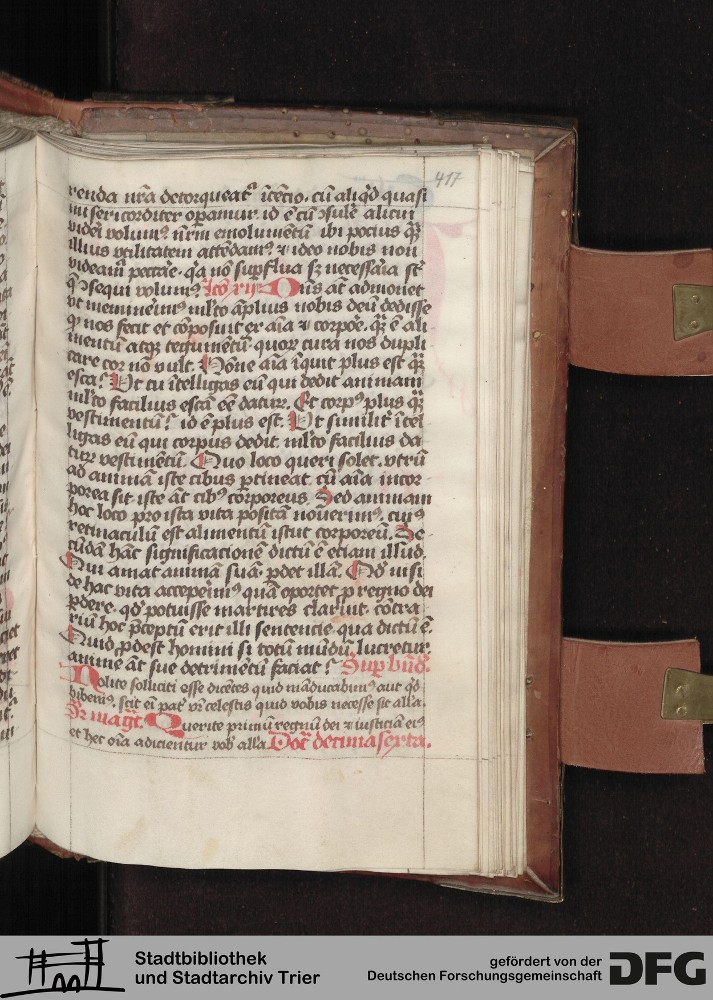 417
renda nr̄a detorqueat᷑ ītēcio. cū aliq̇d quasi
misericorditer opamur. id ē cū ɔsule alicui
videri volumꝰ nr̄m emolumētū ibi pocius q̄ꝫ
illius vtilitatem attēdamꝰ ⁊ ideo nobis non
videam̄ peccare. q̇a nō supflua sꝫ necessaria st̄
q̄ ɔsequi volumꝰ
Dn̄s at̄ admonet
vt meminerimꝰ ml̄to āplius nobis deū dedisse
qꝫ nos fecit et cōposuit ex aīa ⁊ corpoē. q̄ꝫ ē ali
mentū atqꝫ tegumētū. quoꝝ cura nos dupli
care cor nō vult. Nōne aīa īquit plus est q̄ꝫ
esca? Vt tu ītelligas eū qui dedit animam
ml̄to facilius escā eē daturꝰ. Et corpꝰ plus q̄ꝫ
vestimentū? id ē plus est. Vt simil̄r ītel
ligas eū qui corpus dedit. ml̄to facilius da
turꝰ vestimētū. Quo loco queri solet. vtrū
ad animā iste cibus ꝑtineat. cū aīa incor
porea sit iste at̄ cibꝰ corporeus. Sed animam
hoc loco pro ista vita positā nouerimꝰ. cuiꝰ
retinaculū est alimentū istut corporeū. Se
cūdā hāc significationē dictū ē etiam illud.
Qui amat animā suā. ꝑdet illā. Qd̄ nisi
de hac vita acceperimꝰ quā oportet ꝓ regno dei
ꝑdere. qd̄ potuisse martires claruit. cōtra
riū hoc p̄ceptū erit illi sentencie. qua dictū ē.
Quid ꝓdest homini si totū mūdū lucretur.
anime at̄ sue detrimētū faciat? Suꝑ bn̄d̄.
Nolite solliciti esse dicētes quid māducabimꝰ aut qd̄
bibemꝰ. scit eī pat᷑ vr̄ celestis quid vobis necesse sit all̄a.
Suꝑ mag̅t. Querite primū regnū dei ⁊ iusticiā eiꝰ
et hec oīa adicientur vob̄ all̄a. Doc̄ decima sexta.
Stadtbibliothek
und Stadtarchiv Trier
gefördert von der
Deutschen Forschungsgemeinschaft
DFG